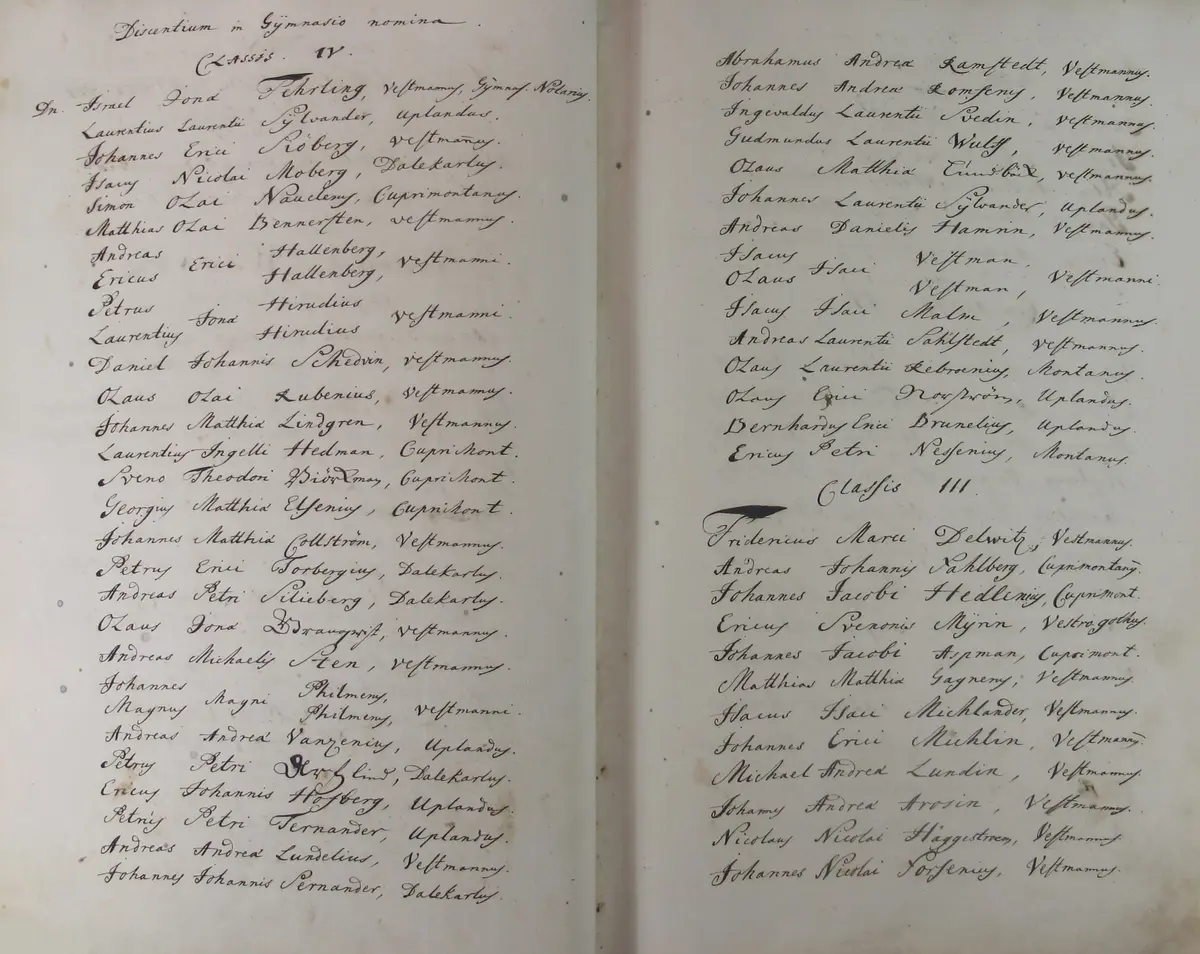 Discentium in Gÿmnasio nomina.
Classis. IV.
Dn. Israel Jonæ Fehrling, Vestmannus, Gÿmnas. Notarius.
Laurentius Laurentii Sÿlvander, Uplandus.
Johannes Erici Siöberg, Vestmañus.
Isacus Nicolai Moberg, Dalekarlus.
Simon Olai Nauclerus, Cuprimontanus.
Matthias Olai Bennersten, Vestmannus.
Andreas Hallenberg,
Erici Vestmanni.
Ericus Hallenberg,
Petrus Hirudius
Jonæ Vestmanni.
Laurentius Hirudius
Daniel Johannis Schedvin, Vestmannus.
Olaus Olai Rubenius, Vestmannus.
Johannes Matthiæ Lindgren, Vestmannus.
Laurentius Ingelli Hedman, Cuprimont.
Sveno Theodori Biörkman, Cuprimont.
Georgius Matthiæ Elfenius, Cuprimont.
Johannes Matthiæ Collström, Vestmannus.
Petrus Erici Torbergius, Dalekarlus.
Andreas Petri Silieberg, Dalekarlus.
Olaus Jonæ Vestmannus.
Andreas Michaelis Sten, Vestmannus.
Johannes Philmerus,
Magni Vestmanni.
Magnus Philmerus,
Andreas Andreæ Vanzenius, Uplandus.
Petrus Petri Dalekarlus.
Ericus Johannis Hofberg, Uplandus.
Petrus Petri Ternander, Uplandus.
Andreas Andreæ Lundelius, Vestmannus.
Johannes Johannis Sernander, Dalekarlus.
Abrahamus Andreæ Ramstedt, Vestmannus.
Johannes Andreæ Romsenius, Vestmannus.
Ingevaldus Laurentii Svedin, Vestmannus.
Gudmundus Laurentii Wulff, Vestmannus.
Olaus Matthiæ Lundbäck, Vestmannus.
Johannes Laurentii Sÿlvander, Uplandus.
Andreas Danielis Hamrin, Vestmannus.
Isacus Vestman,
Isaci Vestmanni.
Olaus Vestman,
Isacus Isaci Malm, Vestmannus.
Andreas Laurentii Sahlstedt, Vestmannus.
Olaus Laurentii Rebroenius, Montanus.
Olaus Erici Norström, Uplandus.
Bernhardus Erici Brunelius, Uplandus.
Ericus Petri Nessenius, Montanus.
Classis III.
Fridericus Marci Delwitz, Vestmannus.
Andreas Johannis Sahlberg, Cuprimontanus.
Johannes Jacobi Hedlenius, Cuprimont.
Ericus Svenonis Mÿrin, Vestrogothus.
Johannes Jacobi Aspman, Cuprimont.
Matthias Matthiæ Gagnerus, Vestmannus.
Isacus Isaci Michlander, Vestmannus.
Johannes Erici Michlin, Vestmannus.
Michael Andreæ Lundin, Vestmannus.
Johannes Andreæ Arosin, Vestmannus.
Nicolaus Nicolai Häggestroem, Vestmannus.
Johannes Nicolai Forsenius, Vestmannus.